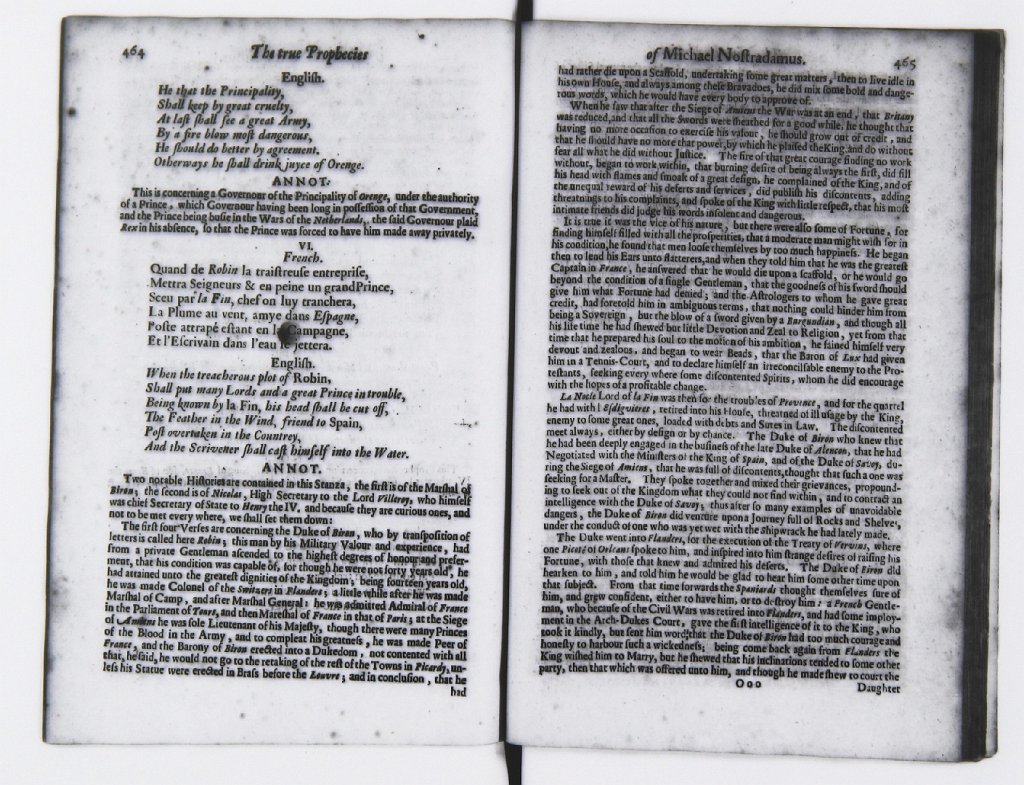 464
The true Prophecies
English.
He that the Principality,
Shall keep by great cruelty,
At last shall see a great Army,
By a fire blow most dangerous,
He should do better by agreement.
Otherways he shall drink juyce of Orenge.
ANNOT.
This is concerning a Governour of the Principality of Orenge, under the authority
of a Prince, which Governour having been long in possession of that Government,
and the Prince being busie in the Wars of the Netherlands, the said Governour plaid
Rex in his absence, so that the Prince was forced to have him made away privately.
VI.
French.
Quand de Robin la traistreuse entreprise,
Mettra Seigneurs & en peine un grand Prince,
Sceu par la Fin, chef on luy tranchera,
La Plume au vent, amye dans Espagne,
Poste attrapé estant en la Campagne,
Et l'Escrivain dans l'eau se jettera.
English.
When the treacherous plot of Robin,
Shall put many Lords and a great Prince in trouble,
Being known by la Fin, his head shall be cut off,
The Feather in the Wind, friend to Spain,
Post overtaken in the Countrey,
And the Scrivener shall cast himself into the Water.
ANNOT.
Two notable Histories are contained in this Stanza, the first is of the Marshal of
Biron; the second is of Nicolas, High Secretary to the Lord Villeroy, who himself
was chief Secretary of State to Henry the IV. and because they are curious ones, and
not to be met every where, we shall set them down:
The first four Verses are concerning the Duke of Biron, who by transposition of
letters is called here Robin; this man by his Military Valour and experience, had
from a private Gentleman ascended to the highest degrees of honour and prefer-
ment, that his condition was capable of, for though he were not forty years old, he
had attained unto the greatest dignities of the Kingdom; being fourteen years old,
he was made Colonel of the Switzers in Flanders; a little while after he was made
Marshal of Camp, and after Marshal General: he was admitted Admiral of France
in the Parliament of Tours, and then Mareshal of France in that of Paris; at the Siege
of Amiens he was sole Lieutenant of his Majesty, though there were many Princes
of the Blood in the Army, and to compleat his greatness, he was made Peer of
France, and the Barony of Biron erected into a Dukedom, not contented with all
that, he said, he would not go to the retaking of the rest of the Towns in Picardy, un-
less his Statue were erected in Brass before the Louvre; and in conclusion, that he
had
of Michael Nostradamus.
465
had rather die upon a Scaffold, undertaking some great matters, then to live idle in
his own House, and always among these Bravadoes, he did mix some bold and dange-
rous words, which he would have every body to approve of.
When he saw that after the Siege of Amiens the War was at an end, that Britany
was reduced, and that all the Swords were sheathed for a good while, he thought that
having no more occasion to exercise his valour, he should grow out of credit, and
that he should have no more that power, by which he plaised the King, and do without
fear all what he did without Justice. The fire of that great courage finding no work
without, began to work within, that burning desire of being always the first, did fill
his head with flames and smoak of a great design, he complained of the King, and of
the unequal reward of his deserts and services, did publish his discontents, adding
threatnings to his complaints, and spoke of the King with little respect, that his most
intimate friends did judge his words insolent and dangerous.
It is true it was the vice of his nature, but there were also some of Fortune, for
finding himself filled with all the prosperities, that a moderate man might wish for in
his condition, he found that men loose themselves by too much happiness. He began
then to lend his Ears unto flatterers, and when they told him that he was the greatest
Captain in France, he answered that he would die upon a scaffold, or he would go
beyond the condition of a single Gentleman, that the goodness of his sword should
give him what Fortune had denied; and the Astrologers to whom he gave great
credit, had foretold him in ambiguous terms, that nothing could hinder him from
being a Sovereign, but the blow of a sword given by a Burgundian, and though all
his life time he had shewed but little Devotion and Zeal to Religion, yet from that
time that he prepared his soul to the motion of his ambition, he fained himself very
devout and zealous, and began to wear Beads, that the Baron of Lux had given
him in a Tennis-Court, and to declare himself an irreconcilsable enemy to the Pro-
testants, seeking every where some discontented Spirits, whom he did encourage
with the hopes of a profitable change.
La Nocle Lord of la Fin was then for the troubles of Provence, and for the quarrel
he had with l'Esdiguieres, retired into his House, threatned of ill usage by the King,
enemy to some great ones, loaded with debts and Sutes in Law. The discontented
meet always, either by design or by chance. The Duke of Biron who knew that
he had been deeply engaged in the business of the late Duke of Alencon, that he had
Negotiated with the Ministers of the King of Spain, and of the Duke of Savoy, du-
ring the Siege of Amiens, that he was full of discontents, thought that such a one was
seeking for a Master. They spoke together and mixed their grievances, propound-
ing to seek out of the Kingdom what they could not find within, and to contract an
intelligence with the Duke of Savoy; thus after so many examples of unavoidable
dangers, the Duke of Biron did venture upon a Journey full of Rocks and Shelves,
under the conduct of one who was yet wet with the Shipwrack he had lately made.
The Duke went into Flanders, for the execution of the Treaty of Vervins, where
one Picoté of Orleans spoke to him, and inspired into him strange desires of raising his
Fortune, with those that knew and admired his deserts. The Duke of Biron did
hearken to him, and told him he would be glad to hear him some other time upon
that subject. From that time forwards the Spaniards thought themselves sure of
him, and grew confident, either to have him, or to destroy him: a French Gentle-
man, who because of the Civil Wars was retired into Flanders, and had some imploy-
ment in the Arch-Dukes Court, gave the first intelligence of it to the King, who
took it kindly, but sent him word that the Duke of Biron had too much courage and
honesty to harbour such a wickedness; being come back again from Flanders the
King wished him to Marry, but he shewed that his inclinations tended to some other
party, then that which was offered unto him, and though he made shew to court the
Ooo
Daughter